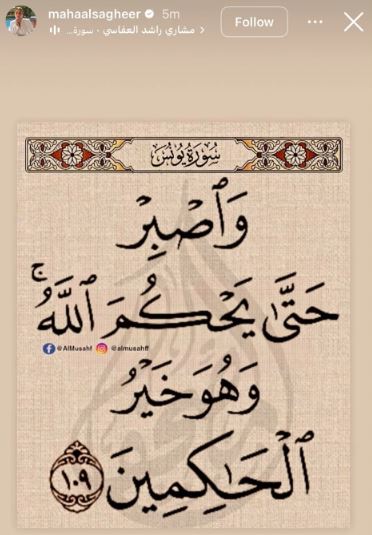 mahaalsagheer 5m
Follow
مشاري راشد العفاسي · سورة...
سُورَةُ يُونُسَ
وَٱصۡبِرۡ
حَتَّىٰ يَحۡكُمَ ٱللَّهُۚ
@AlMusahf @almusahff
وَهُوَ خَيۡرُ
ٱلۡحَٰكِمِينَ ١٠٩